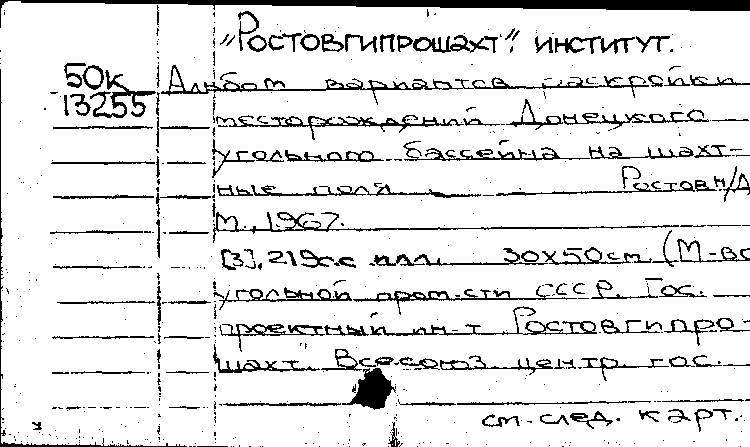 „Ростовгипрошахт". институт.
50к Альбом вариантов раскройки
13255 месторождений Донецкого
угольного бассейна на шахт-
ные поля Ростов н/Д
М., 1967.
[3], 219с.с илл. 30х50см. (М-во
угольной пром-сти СССР. Гос.
проектный ин-т Ростовгипро-
шахт". Всесоюз. центр. гос.
см. след. карт.